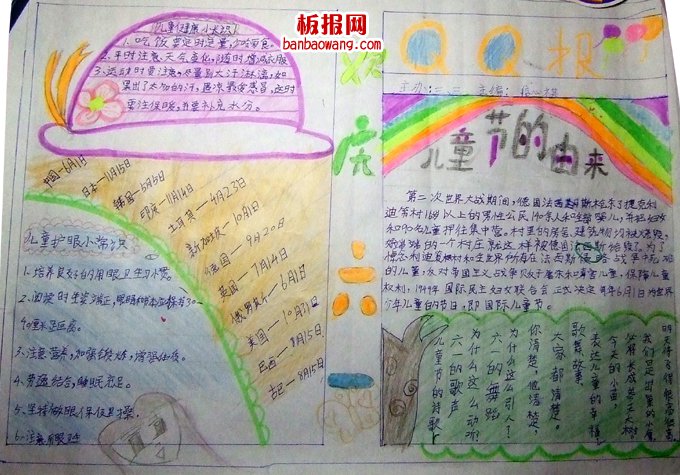 板报网
banbaowang.com
儿童健康小常识
1、吃饭要定时定量,少吃零食。
2、平时注意天气变化,随时增减衣服
3、运动时要注意,尽量别大汗淋漓,如
果出了太多的汗,
要注保暖,并要补充水分。
中国—6月1日
日本—11月15日
韩国—5月5日
印度—11月14日
土耳其—4月23日
新加坡—10月1日
德国—9月20日
英国—7月14日
俄罗斯—6月1日
美国—10月31日
巴西—8月15日
古巴—8月15日
儿童护眼小常识
1、培养良好的用眼卫生习惯。
2、阅读时坐姿端正,眼睛和书本应保持30—
40厘米距离。
3、注意营养,加强锻炼,增强体质。
4、劳逸结合,睡眠充足。
5、坚持做眼保健操。
欢
庆
六
一
QQ报
主办:三、二 主编:
儿童节的由来
第二次世界大战期间,德国法西斯
迪策村16岁以上的男性公民140余人和全部婴儿,并把妇女
和90名儿童押往集中营。村里的房舍、建筑物均被烧毁,
好端端的一个村庄就这样被德国法西斯给毁了。为了
悼念利迪策村和全世界所有在法西斯侵略战争中死难
的儿童,反对帝国主义战争贩子屠杀和毒害儿童,保障儿童
权利,1949年国际民主妇女联合会正式决定每年6月1日为世界
少年儿童的节日,即国际儿童节。
儿童节的诗歌
六一的歌声
为什么这么动听?
六一的舞蹈
为什么这么引人?
你清楚,他清楚,
大家都清楚。
歌舞故事,
表达儿童的幸福
今天的小苗,
必将长成参天大树。
我们是出巢的小鹰,